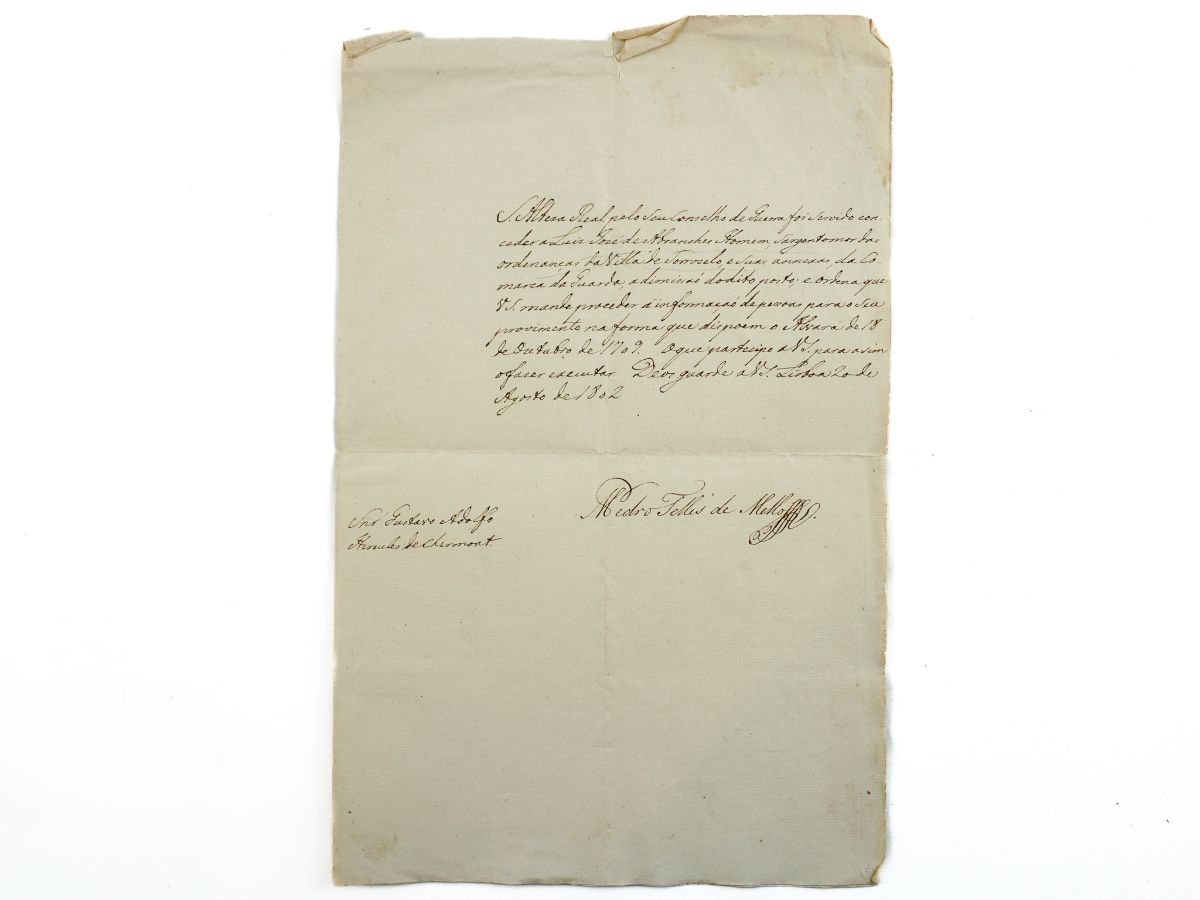 S. Alteza Real pelo Seu Conselho de Guerra foi Servido con-
ceder a Luiz José de Abranches Homem, Sargentomor das
ordenanças da Villa de Torrozelo, e suas annexas, da Co-
marca da Guarda, a dimisaõ do dito posto; e ordena que
V S. mande proceder á informaçaõ de pessoas para o seu
provimento na forma que dispoem o Alvará de 18
de Outubro de 1709. O que partecipo a V S. para asim
o fazer executar. Deos guarde a V S. Lisboa 20 de
Agosto de 1802
Pedro Tellis de Mello
Snr̃ Gustavo Adolfo
Hercules de Chermont.